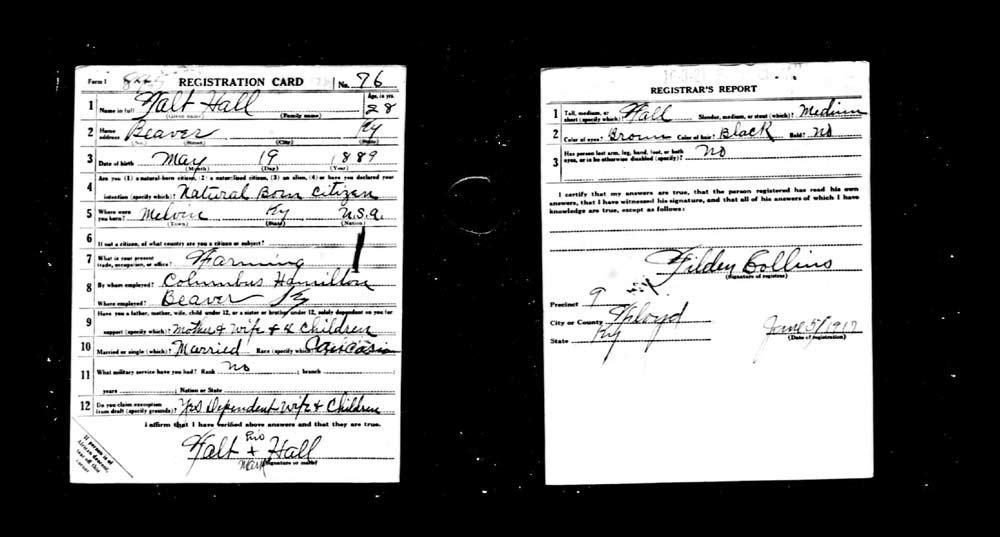 Form 1 REGISTRATION CARD No. 76
1 Name in full Walt Hall Age, in yrs. 28
(Given name) (Family name)
2 Home address Beaver Ky
(No.) (Street) (City) (State)
3 Date of birth May 19 1889
(Month) (Day) (Year)
4 Are you (1) a natural-born citizen, (2) a naturalized citizen, (3) an alien, (4) or have you declared your
intention (specify which)? Natural Born Citizen
5 Where were you born? Melvin Ky U.S.A.
(Town) (State) (Nation)
6 If not a citizen, of what country are you a citizen or subject?
7 What is your present trade, occupation, or office? Farming
8 By whom employed? Columbus Hamilton
Where employed? Beaver Ky
9 Have you a father, mother, wife, child under 12, or a sister or brother under 12, solely dependent on you for
support (specify which)? Mother & wife & 4 Children
10 Married or single (which)? Married Race (specify which)? Caucasian
11 What military service have you had? Rank no ; branch ;
years ; Nation or State
12 Do you claim exemption from draft (specify grounds)? Yes Dependent wife & Children
I affirm that I have verified above answers and that they are true.
his
Walt + Hall
mark (Signature or mark)
If person is of
African descent,
tear off this
corner
REGISTRAR'S REPORT
1 Tall, medium, or short (specify which)? Tall Slender, medium, or stout (which)? Medium
2 Color of eyes? Brown Color of hair? Black Bald? No
3 Has person lost arm, leg, hand, foot, or both
eyes, or is he otherwise disabled (specify)? No
I certify that my answers are true, that the person registered has read his own
answers, that I have witnessed his signature, and that all of his answers of which I have
knowledge are true, except as follows:
Tilden Collins
(Signature of registrar)
Precinct 9
City or County Floyd
State Ky
June 5/1917
(Date of registration)